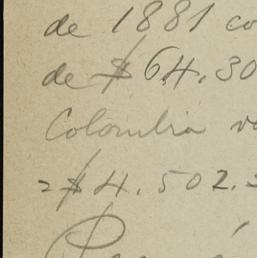 de 1881 co
de $ 64.30
Colombia va
= $ 4.502.